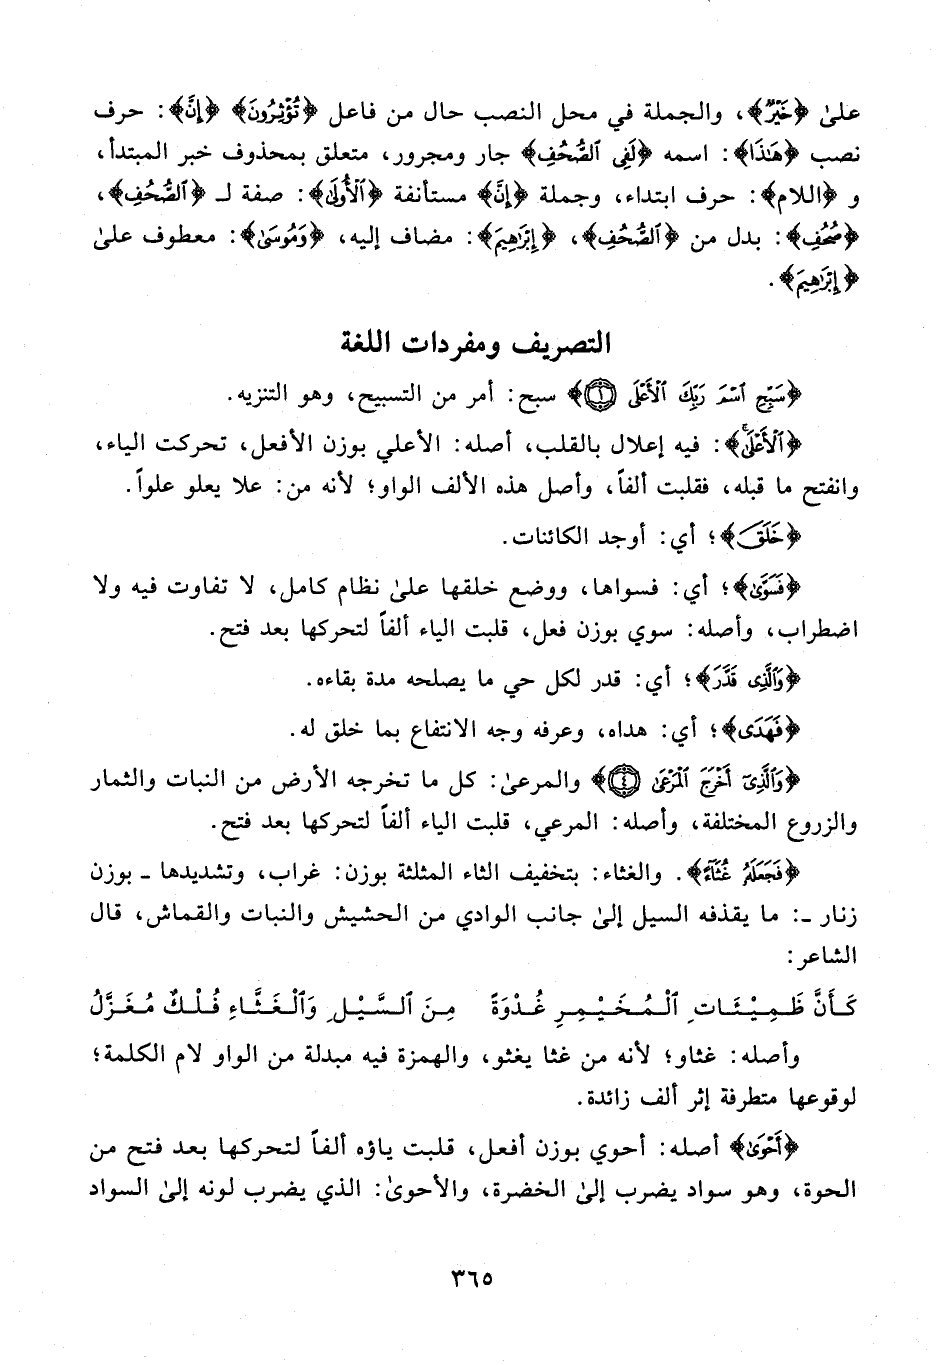 علىٰ ﴿خَيْرٌ﴾، والجملة في محل النصب حال من فاعل ﴿تُؤْثِرُونَ﴾ ﴿إِنَّ﴾: حرف
نصب ﴿هَٰذَا﴾: اسمه ﴿لَفِى ٱلصُّحُفِ﴾ جار ومجرور، متعلق بمحذوف خبر المبتدأ،
و ﴿اللام﴾: حرف ابتداء، وجملة ﴿إِنَّ﴾ مستأنفة ﴿ٱلْأُولَىٰ﴾: صفة لـ ﴿ٱلصُّحُفِ﴾،
﴿صُحُفِ﴾: بدل من ﴿ٱلصُّحُفِ﴾، ﴿إِبْرَٰهِيمَ﴾: مضاف إليه، ﴿وَمُوسَىٰ﴾: معطوف علىٰ
﴿إِبْرَٰهِيمَ﴾.
التصريف ومفردات اللغة
﴿سَبِّحِ ٱسْمَ رَبِّكَ ٱلْأَعْلَى ١﴾ سبح: أمر من التسبيح، وهو التنزيه.
﴿ٱلْأَعْلَىۚ﴾: فيه إعلال بالقلب، أصله: الأعلي بوزن الأفعل، تحركت الياء،
وانفتح ما قبله، فقلبت ألفاً، وأصل هذه الألف الواو؛ لأنه من: علا يعلو علواً.
﴿خَلَقَ﴾؛ أي: أوجد الكائنات.
﴿فَسَوَّىٰ﴾؛ أي: فسواها، ووضع خلقها علىٰ نظام كامل، لا تفاوت فيه ولا
اضطراب، وأصله: سوي بوزن فعل، قلبت الياء ألفاً لتحركها بعد فتح.
﴿وَٱلَّذِى قَدَّرَ﴾؛ أي: قدر لكل حي ما يصلحه مدة بقاءه.
﴿فَهَدَى﴾؛ أي: هداه، وعرفه وجه الانتفاع بما خلق له.
﴿وَٱلَّذِىٓ أَخْرَجَ ٱلْمَرْعَىٰ ٤﴾ والمرعىٰ: كل ما تخرجه الأرض من النبات والثمار
والزروع المختلفة، وأصله: المرعي، قلبت الياء ألفاً لتحركها بعد فتح.
﴿فَجَعَلَهُۥ غُثَآءً﴾. والغثاء: بتخفيف الثاء المثلثة بوزن: غراب، وتشديدها ـ بوزن
زنار ـ: ما يقذفه السيل إلىٰ جانب الوادي من الحشيش والنبات والقماش، قال
الشاعر:
كَأَنَّ طَمِيْئَاتِ ٱلْمُخَيْمِرِ غُدْوَةً مِنَ ٱلسَّيْلِ وَٱلْغَثَّاءِ فُلْكٌ مُغَزَّلُ
وأصله: غثاو؛ لأنه من غثا يغثو، والهمزة فيه مبدلة من الواو لام الكلمة؛
لوقوعها متطرفة إثر ألف زائدة.
﴿أَحْوَىٰ﴾ أصله: أحوي بوزن أفعل، قلبت ياؤه ألفاً لتحركها بعد فتح من
الحوة، وهو سواد يضرب إلىٰ الخضرة، والأحوىٰ: الذي يضرب لونه إلىٰ السواد
٣٦٥